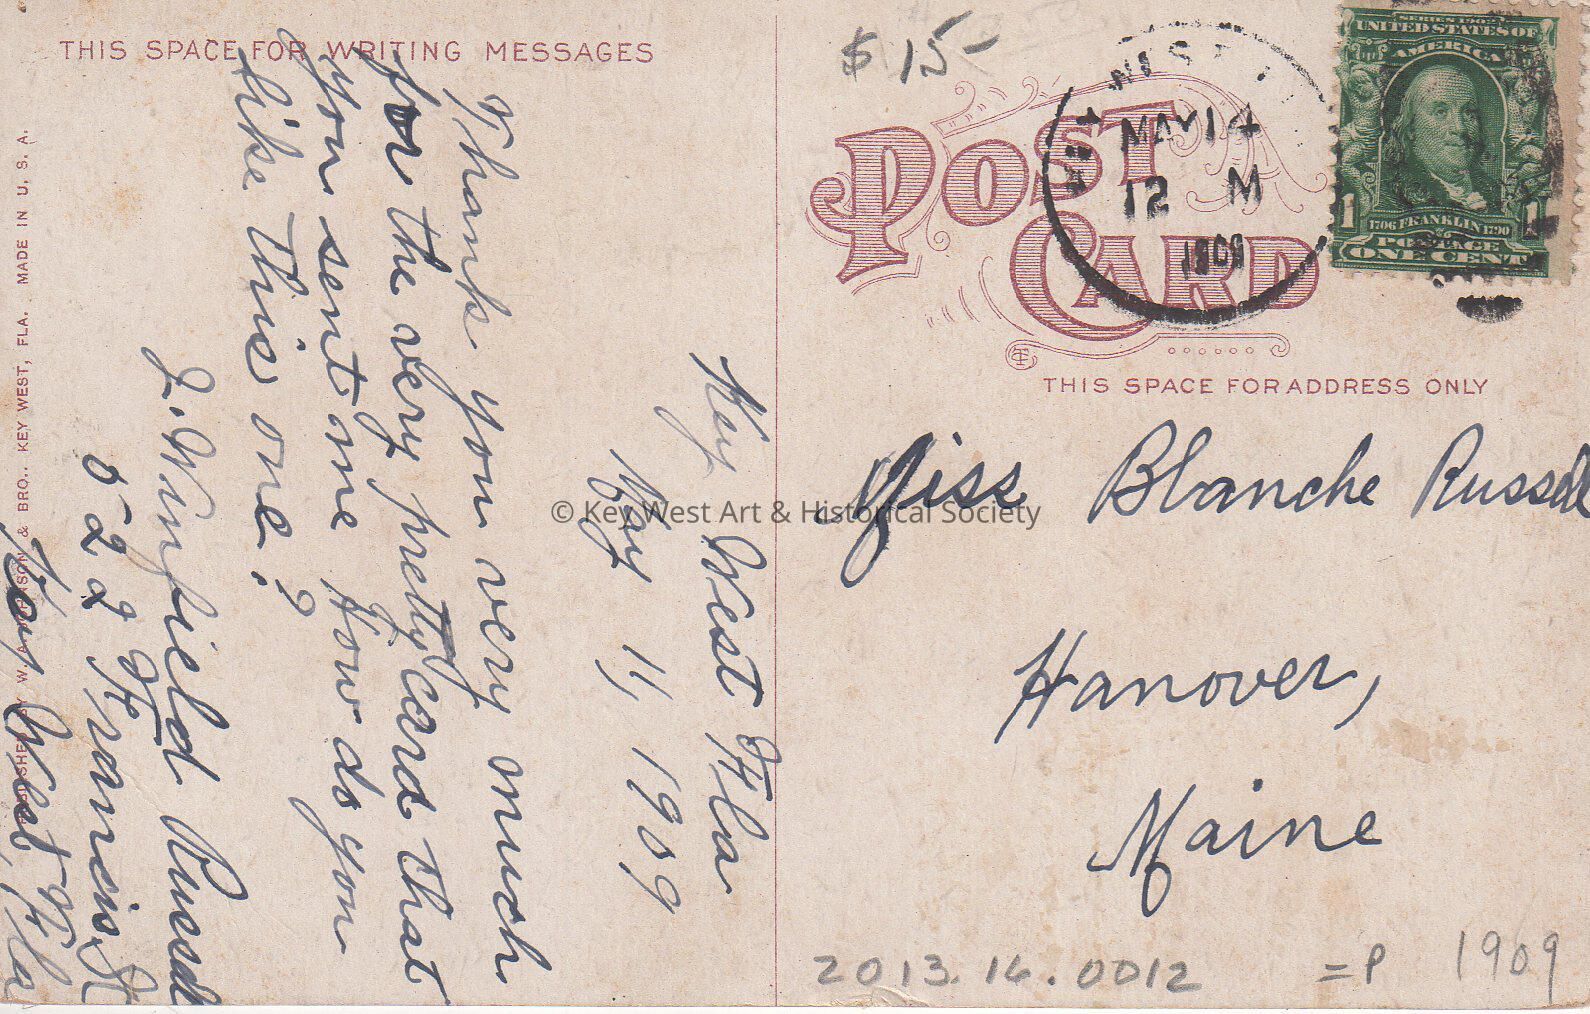 THIS SPACE FOR WRITING MESSAGES
Key West Fla
May 11, 1909
Thank you very much
for the very pretty card that
you sent me How do you
like this one?
J. Winfield Russell
522 Francis St
Key West, Fla
PUBLISHED BY W. A. JOHNSON & BRO., KEY WEST, FLA. MADE IN U. S. A.
$ 15-
POST CARD
MAY 14
12 M
1909
SERIES 1902
UNITED STATES OF
AMERICA
1706 FRANKLIN 1790
1 1
POSTAGE
ONE CENT
THIS SPACE FOR ADDRESS ONLY
Miss Blanche Russell
Hanover,
Maine
© Key West Art & Historical Society
2013.16.0012 =P 1909